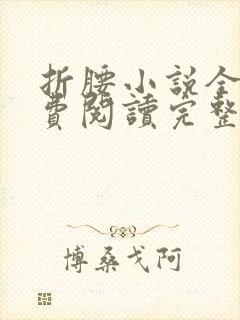 折腰小說全
費閱讀完整
博桑戈阿